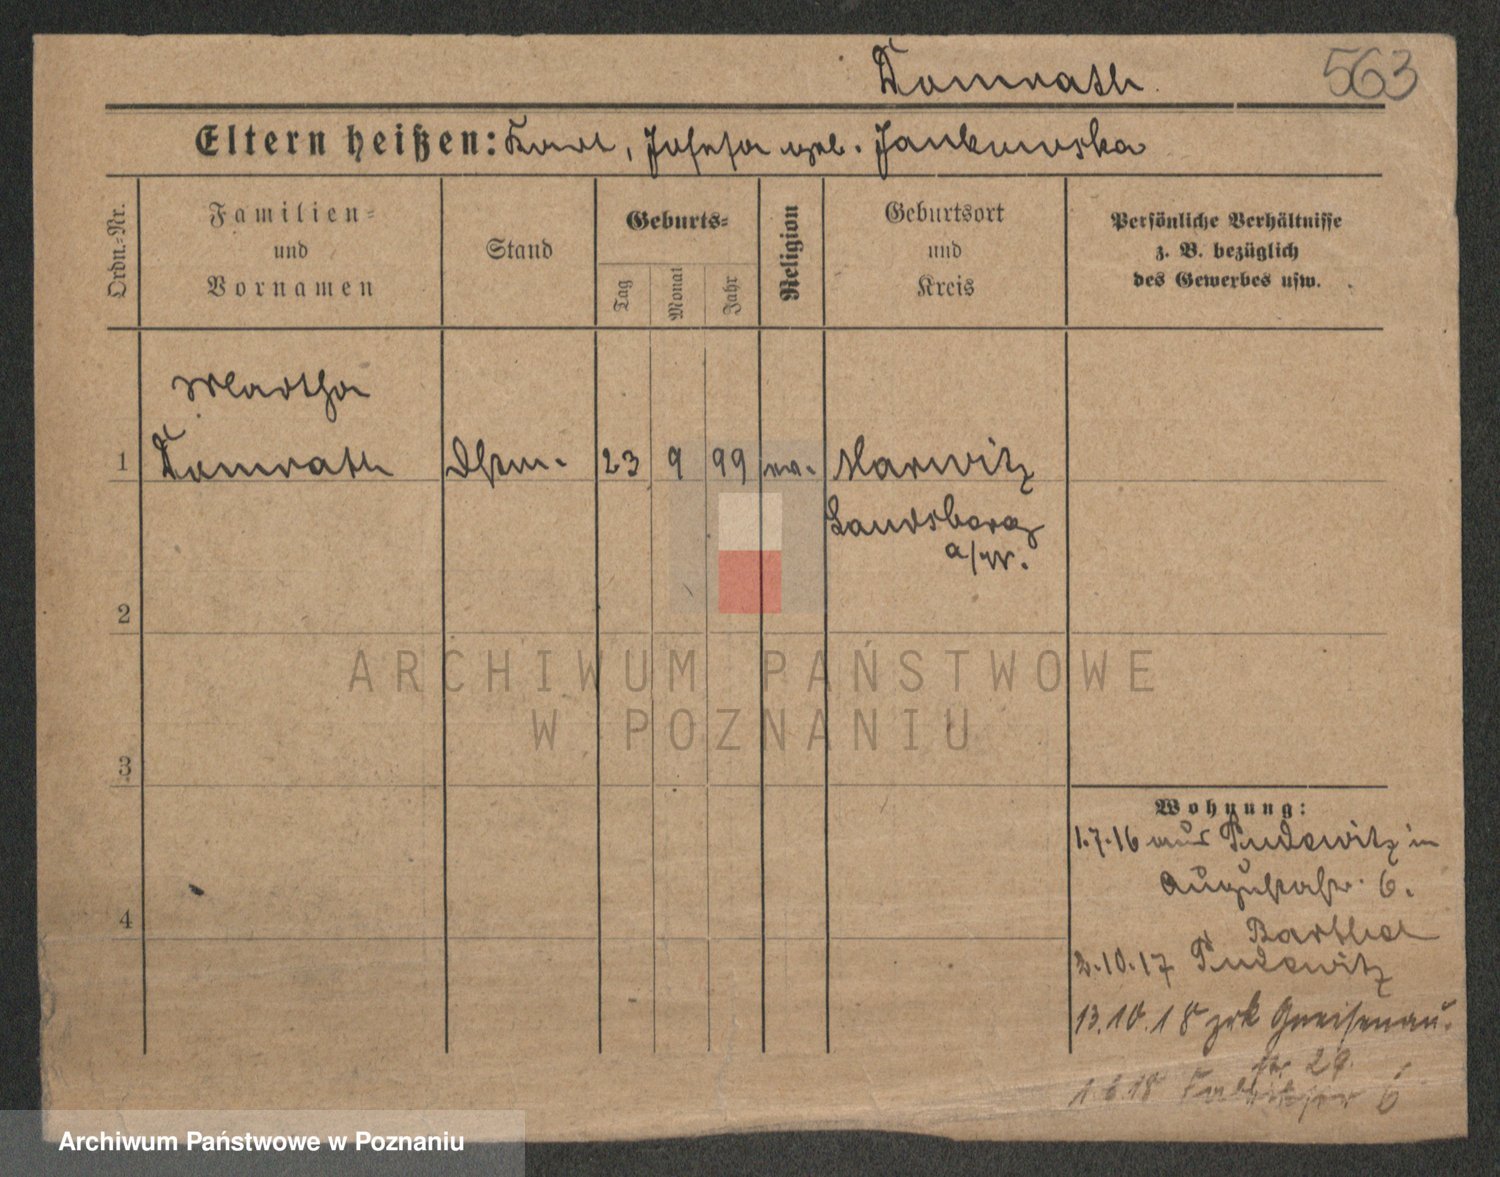 Domrath
563
Eltern heißen: Karl, Josefa geb. Jankowska
Ordn.-Nr.
Familien-
und
Vornamen
Stand
Geburts-
Tag
Monat
Jahr
Religion
Geburtsort
und
Kreis
Persönliche Verhältnisse
z. B. bezüglich
des Gewerbes usw.
Martha
1 Domrath 23 9 99 ev. Marwitz
Landsberg
a/W.
2
3
4
ARCHIWUM PAŃSTWOWE
W POZNANIU
Wohnung:
1.7.16 aus Pudewitz in
Augustastr. 6.
Barthel
2.10.17 Pudewitz
13.10.18 zrk Gneisenau-
str. 29.
1.6.18 6
Archiwum Państwowe w Poznaniu